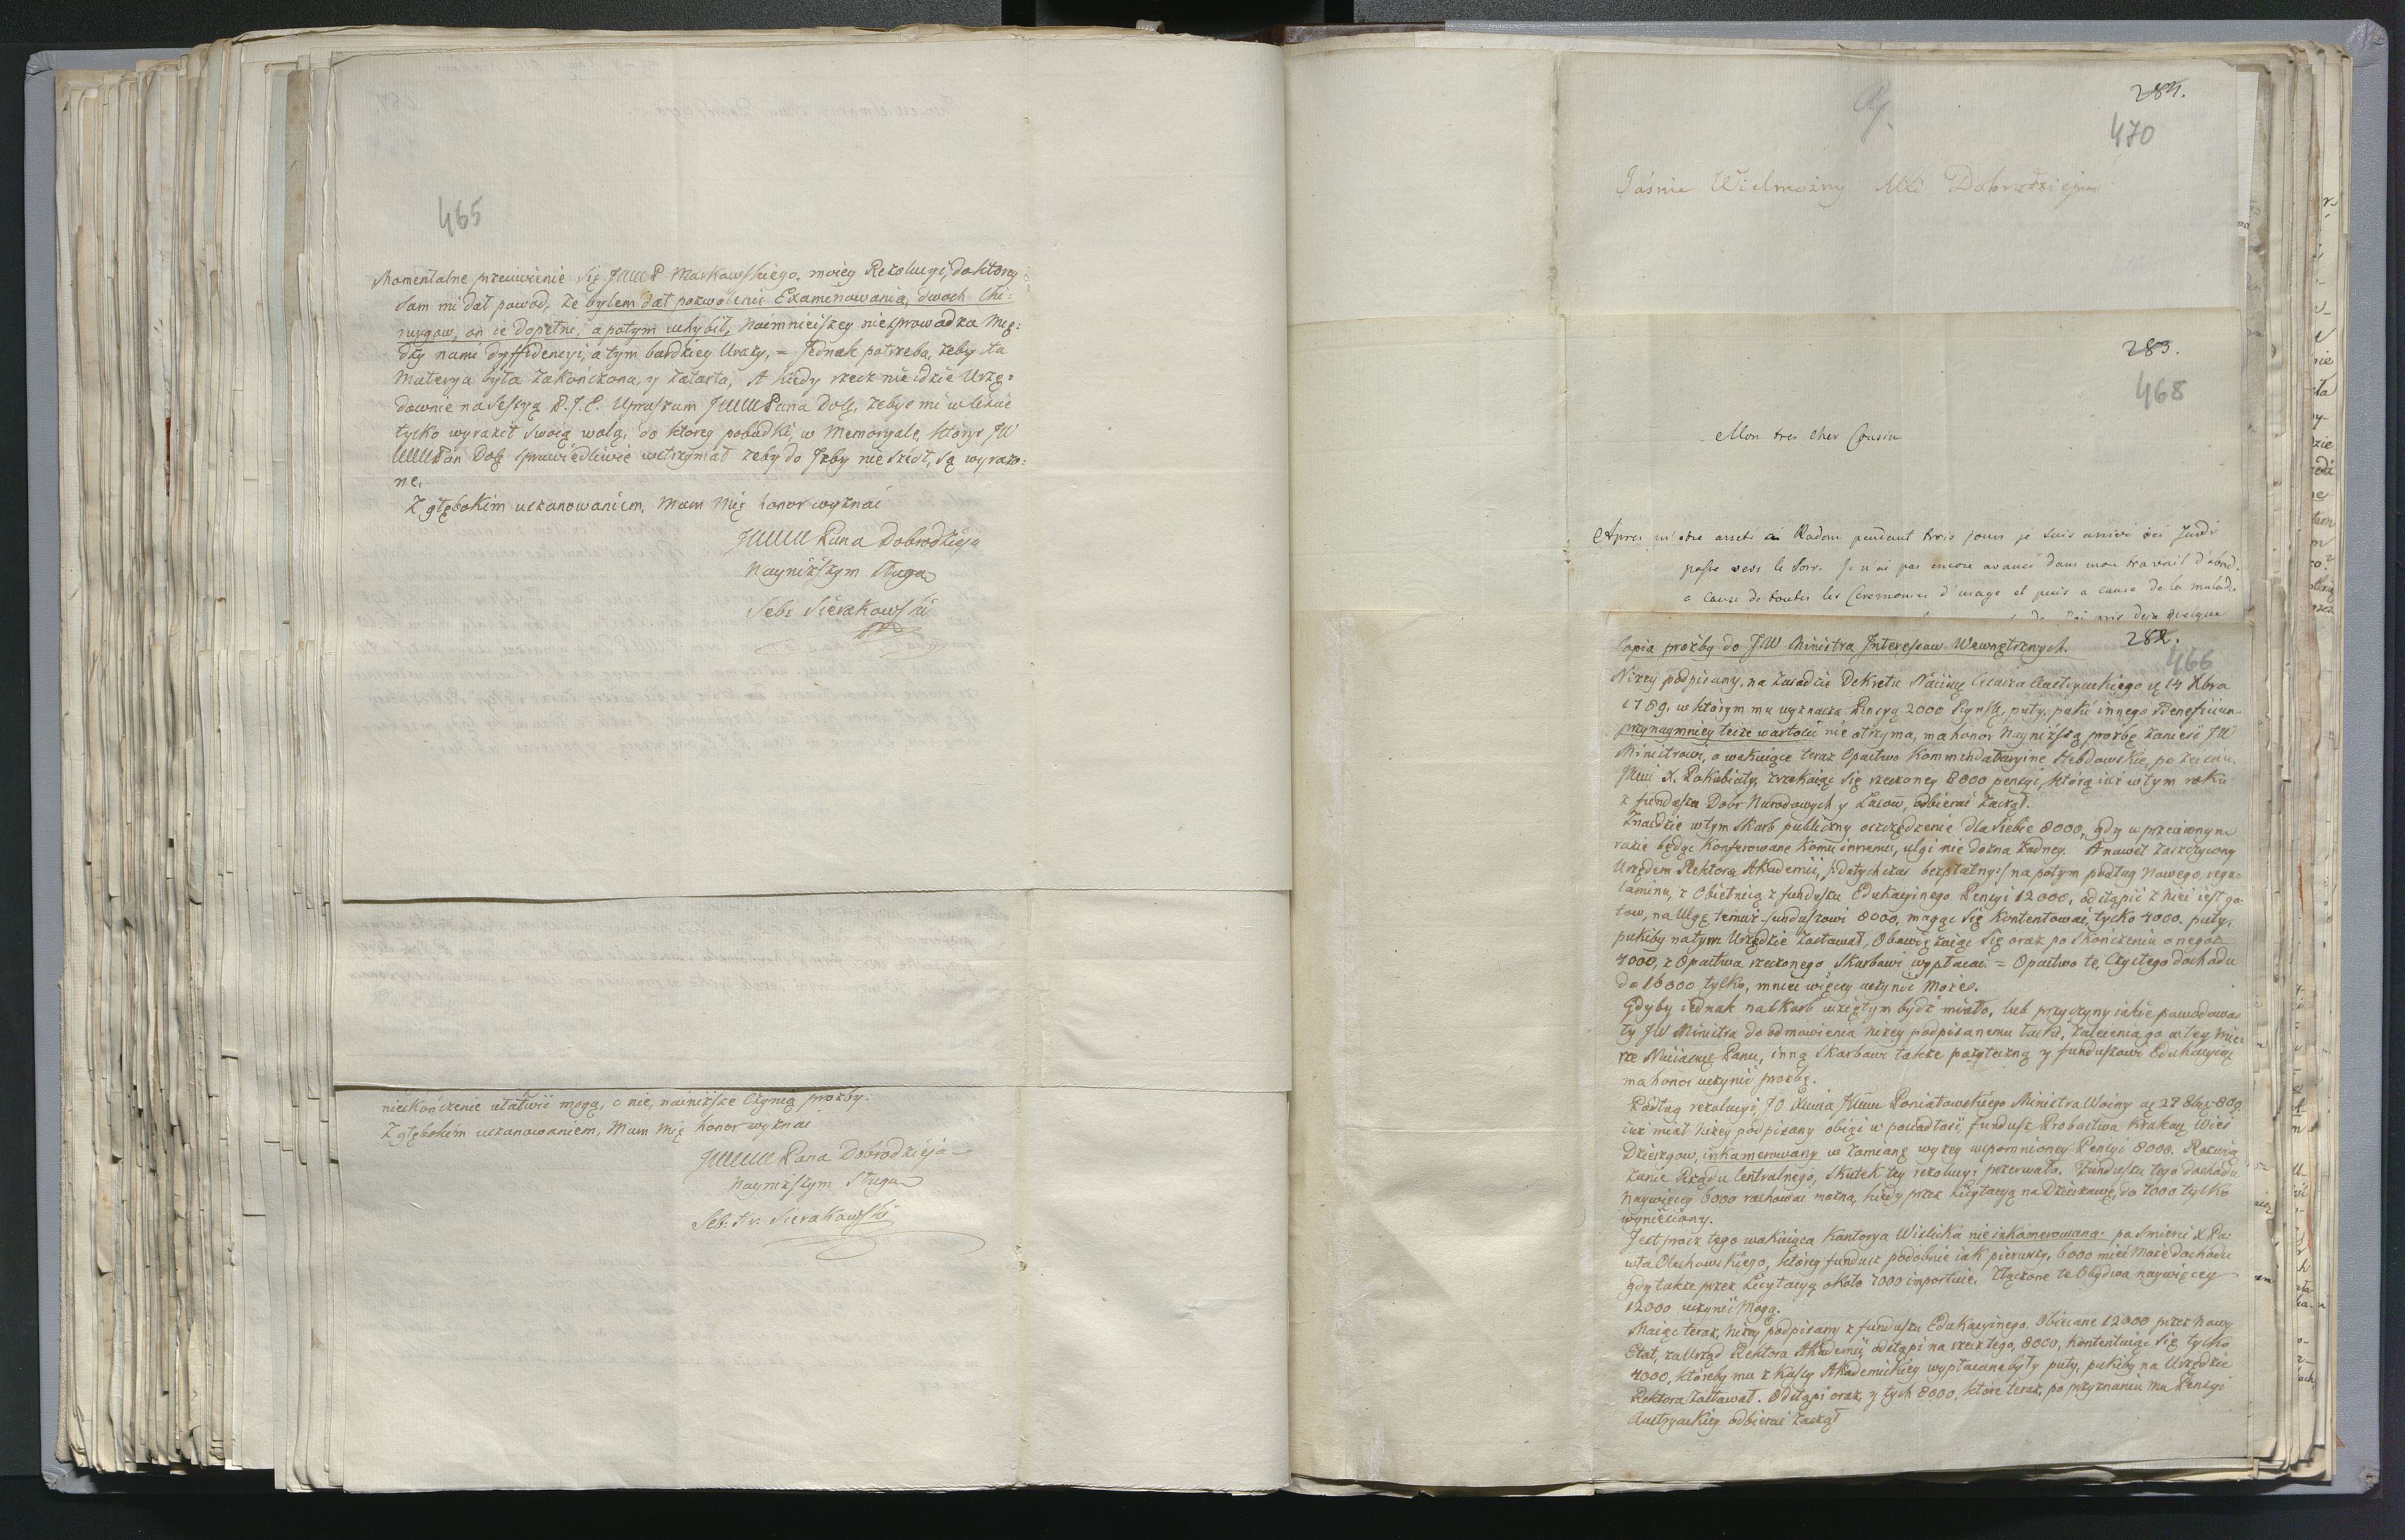 465
Momentalne przeciwienie się JWW P Markowskiego, moiey Rezolucyi, do ktorey
sam mi dał powod, że byłem dał pozwolenie Examinowania, dwoch Chi-
rurgow, on ie dopełnił, a potym uchybił, naimnieiszey niesprowadza Mię-
dzy nami dyffidencyi, a tym bardziey Urazy, = Jednak potrzeba, żeby ta
Materya była Zakończona, y Zatarta, A kiedy rzecz nie idzie Urzę-
downie na Sessyą D. J. E. Upraszam JWW Pana Dobr, żebyś mi w liście
tylko wyraził swoią wolą, do ktorey pobudki, w Memoryale, ktory JW
WWPan Dobr sprawiedliwie wstrzymał żeby do Izby nie szedł, są wyrażo-
ne.
Z głębokim uszanowaniem, Mam Mię honor wyznać
JWWW Pana Dobrodzieja
Nayniższym Sługą
Seb: Sierakowski
nieskończenie ułatwić mogą, o nie, nainiższe Czynię prozby.
Z głębokim uszanowaniem, Mam Mię honor wyznać
JWWW Pana Dobrodzieja
Nayniższym Sługą
Seb: Hr: Sierakowski
284.
470
Jaśnie Wielmożny Mci Dobrodzieju
283.
468
Mon tres cher Cousin
Apres m'etre arreté a Radom pendant trois jours je suis arrivé ici Jeudi
passe vers le soir. Je n'ai pas encore avancé dans mon travail d'abord
a cause de toutes les Ceremonies d'usage et puis a cause de la malad.
J'ai mis deja quelque
282.
466
Copia prozby do JW Ministra Interessow Wewnętrznych.
Niżey podpisany, na zasadzie Dekretu Nayiaś Cesarza Austryackiego d 14 Xbra
1789, w ktorym mu wyznacza Pensyą 2000 Ryńsk, puty, puki innego Beneficium
przynaymniey teyże wartości nie otrzyma, ma honor Nayniższą prozbę zanieść JW
Ministrowi, o wakuiące teraz Opactwo Kommendataryine Hebdowskie, po zeiściu
JWW X. Pokubiaty, zrzekaiąc się rzeczoney 8000 pensyi, ktorą iuż w tym roku
z funduszu Dobr Narodowych y Lasow, odbierać Zaczął.
Znaidzie w tym Skarb publiczny oszczędzenie dla siebie 8000, gdy w przeciwnym
razie będąc Konferowane Komu innemu, ulgi nie dozna żadney. A nawet zaszczycony
Urzędem Rektora Akademii, /:dotychczas bezpłatny:/ na potym podług Nowego, regu-
laminu, z Obietnicą z funduszu Edukacyinego Pensyi 12000, odstąpić z niei iest go-
tow, na Ulgę temuż funduszowi 8000, maiąc się Kontentować, tylko 4000. puty,
pukiby na tym Urzędzie zostawał, Obowięzuiąc się oraz po skończeniu onegoż
4000, z Opactwa rzeczonego Skarbowi wypłacać. = Opactwo te, Czystego dochodu
do 16000 tylko, mniei więcey uczynić Może.
Gdyby iednak na Skarb wziętym bydź miało, lub przyczyny iakie powodowa-
ły JW Ministra do odmowienia niżey podpisanemu łaski, zalecenia go w tey Mie-
rze Nayiaśn Panu, inną Skarbowi także pożyteczną y funduszowi Edukacyi
ma honor uczynić prozbę.
Podług rezolucyi, JO Xcia JWW Poniatowskiego Ministra Woiny d 27 8bra 809
iuż miał niżey podpisany obiąć w posiadłość, fundusz Probostwa Krakow Wieś
Dzierzgow, inkamerowany w zamianę wyżey wspomnioney Pensyi 8000. Rozwią-
zanie Rządu Centralnego, skutek tey rezolucyi przerwało. Funduszu tego dochodu
Naywięcey 6000 rachować można, kiedy przez Licytacyą na Dzierżawę, do 7000 tylko
wyniesiony.
Jest procz tego wakuiąca Kantorya Wislicka nie inkamerowana po Śmierci X Pa-
wła Olechowskiego, ktorey fundusz podobnie iak pierwszy, 6000 mieć Może dochodu
gdy także przez Licytacyą około 7000 importuie. Złączone te Obydwa naywięcey
12000 uczynić Mogą.
Maiąc teraz, niżey podpisany z funduszu Edukacyinego. Obiecane 12000 przez nowy
Etat, za Urząd Rektora Akademii, odstąpi na rzecz tego, 8000, kontentuiąc się tylko
4000, ktoreby mu z Kassy Akademickiey wypłacane były puty, pukiby na Urzędzie
Rektora zostawał. Odstąpi oraz, y tych 8000, ktore teraz, po przyznaniu mu Pensyi
Austryackiey odbierać zaczął